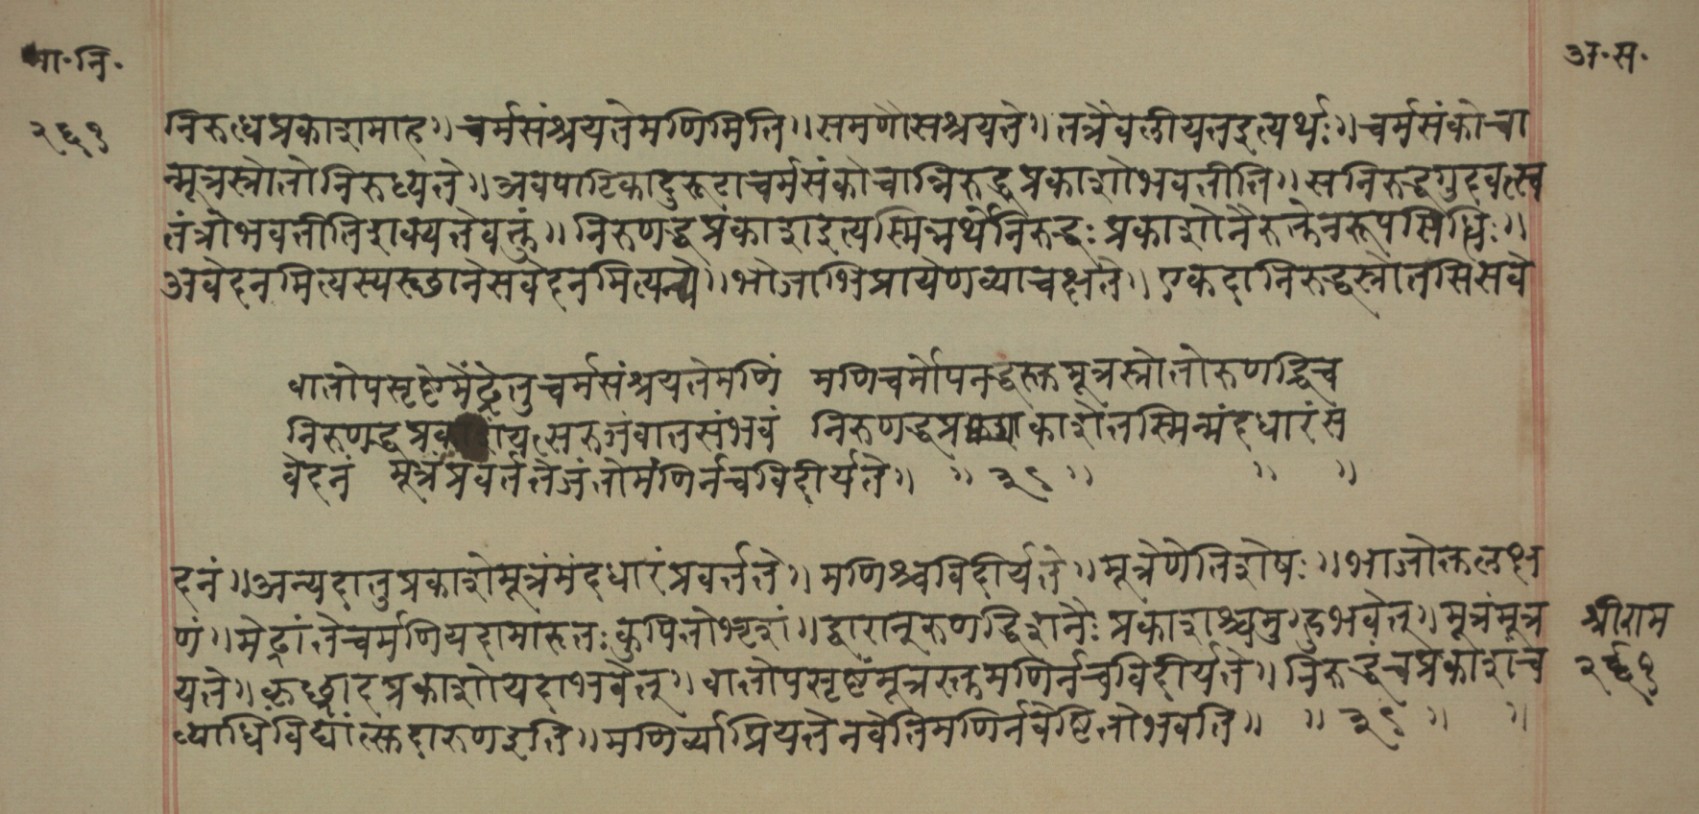 मा·नि·
अ·स·
२६१
निरुत्धप्रकाशमाह॥ चर्मसंश्रयतेमणिमिति॥ समणौसश्रयते॥ तत्रैवलीयतइत्यर्थः॥ चर्मसंकोचा
न्मूत्रस्त्रोतोनिरुध्यते॥ अवपाटिकादुरूटाचर्मसंकोचान्निरुद्धप्रकाशोभवतीति॥ सनिरुद्धगुदवत्स्व
तंत्रोभवतीतिशक्यतेवक्तुं॥ निरुणद्धप्रंकाशइत्यस्मिन्नर्थेनिरुद्धः प्रकाशोनैरुक्तेनरूपसिद्धिः॥
अवेदनमित्यस्यस्छानेसवेदनमित्यन्ये॥ भोजाभिप्रायेणव्याचक्षते॥ एकदानिरुद्धस्त्रोतसिसवे
वातोपसृष्टेमेंढ्रेतुचर्मसंश्रयतेमणिं मणिचर्मोपनद्धस्तमूत्रस्त्रोतोरुणद्धिच
निरुणद्धप्रव यत्सरुजंवातसंभवं निरुणद्धप्र काशेतस्मिन्मंदधारंस
वेदनं मूत्रंप्रवर्ततेजंतोर्मणिर्नचविदीर्यते॥ ॥ ३९ ॥ ॥ ॥
दनं॥ अन्यदातुप्रकाशेमूत्रंमंदधारंप्रवर्त्तते॥ मणिश्चविदीर्यते॥ मूत्रेणेतिशेषः॥ भोजोक्तलक्ष
णं॥ मेढ्रांतेचर्मणियदामारुतः कुपितोभृशं॥ द्वारानुरुणद्धिशनैः प्रकाशश्चमुर्गुदभवेत्॥ मूत्रंमूत्र
श्रीराम
यते॥ कृछ्रादप्रकाशोयदाभवेत्॥ वातोपसृष्टंमूत्रस्तमणिर्नचविदीर्यते॥ निरुद्धंचप्रकाशंच
२६१
व्याधिविद्यांत्स्तदारुणइति॥ मणिर्व्याप्रियतेनवेतिमणिर्नवेष्टितोभवति॥ ॥ ३९ ॥ ॥